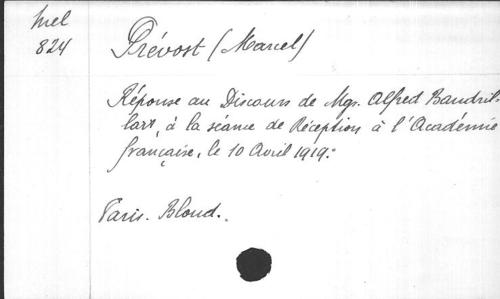 Mel
824
Prévost (Marcel)
Réponse au Discours de Mgr. Alfred Baudril-
lart, à la séance de Réception à l'Académie
française, le 10 Avril 1919.-
Paris. Bloud..